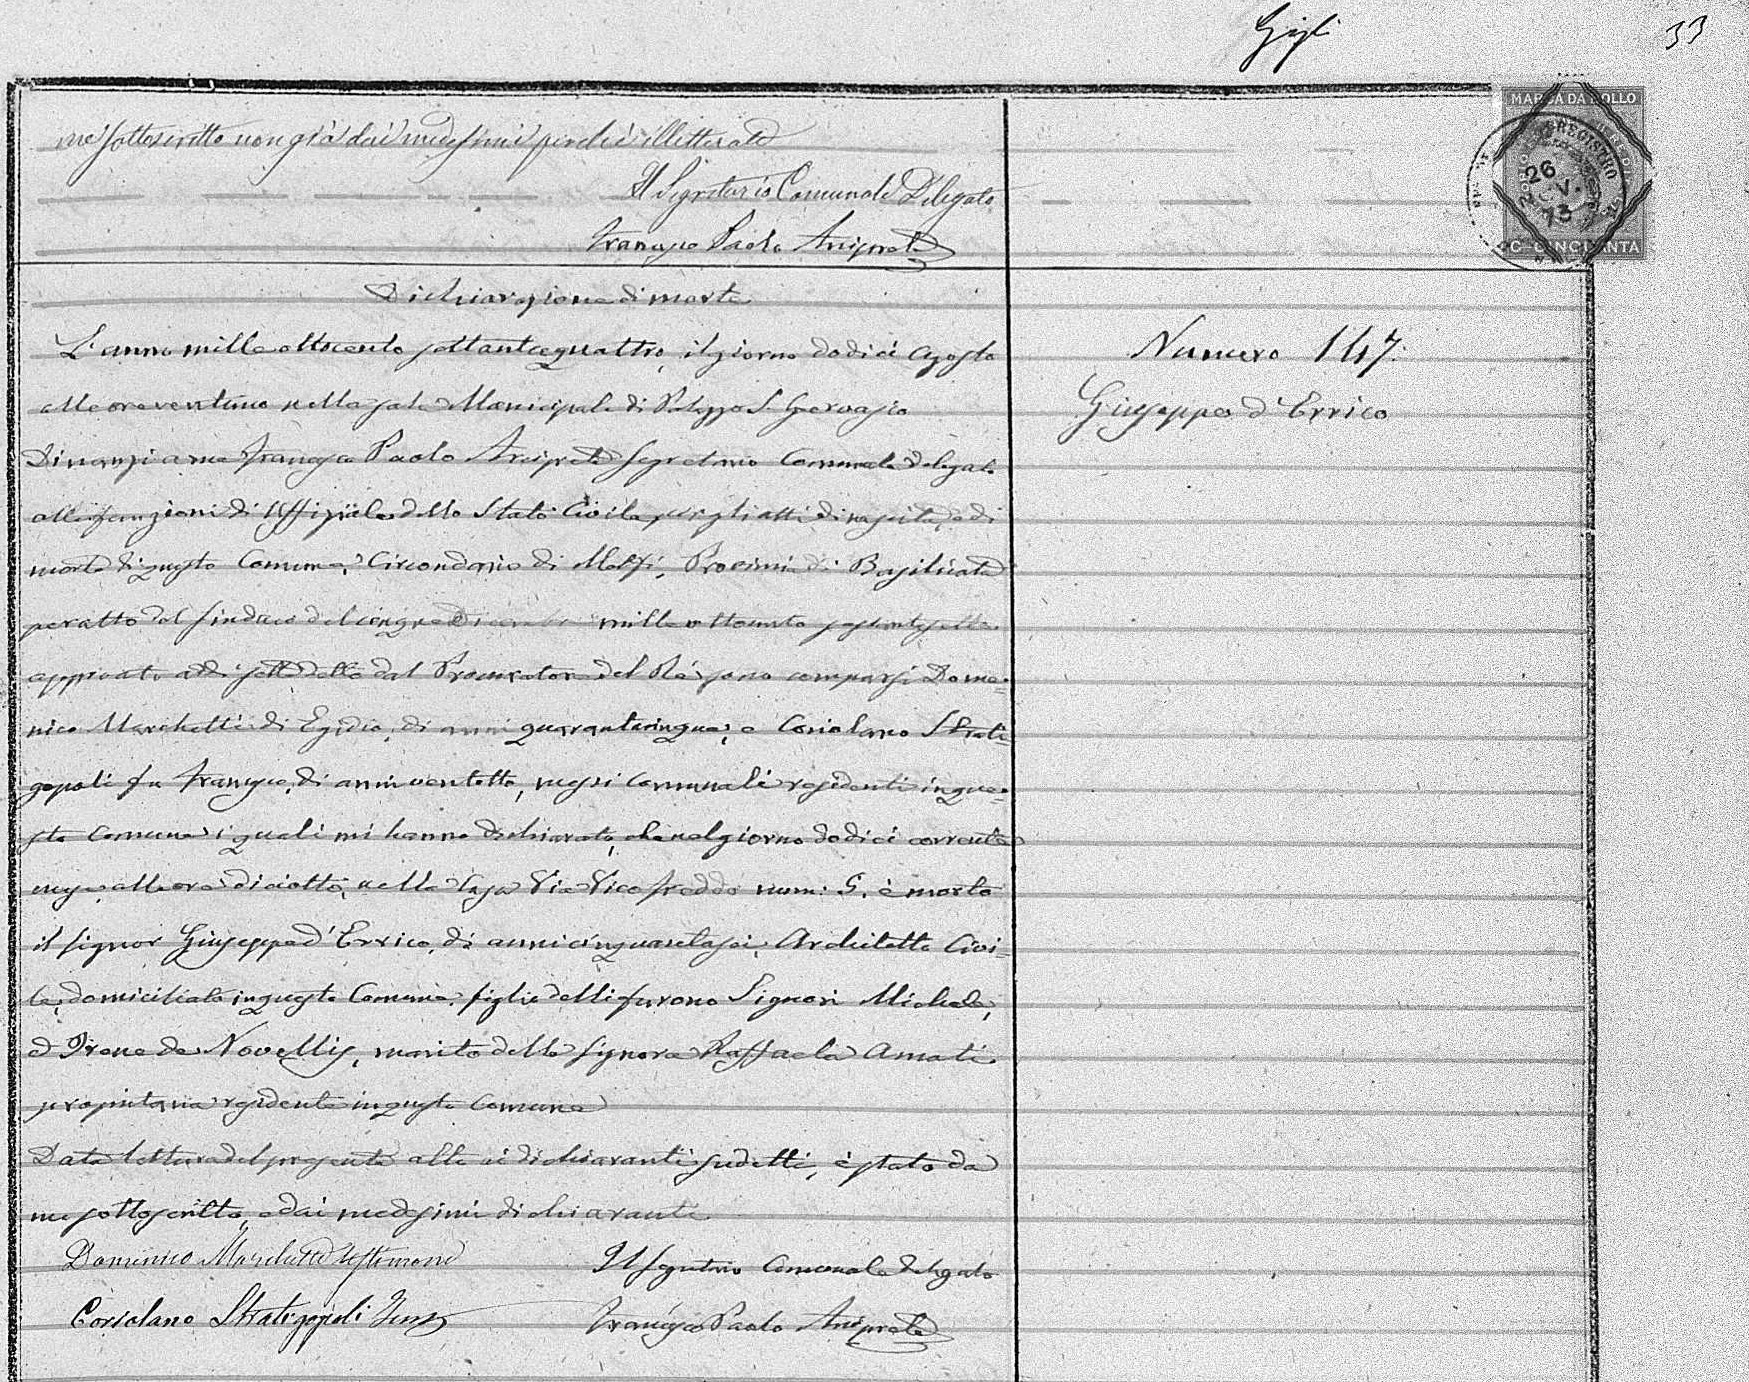 33
MARCA DA BOLLO
26
73
C. CINQUANTA
me sottoscritto non già dai medesimi perchè illetterati
Il Segretario Comunale Delegato
Francesco Paolo Arciprete
Dichiarazione di morte
L'anno mille ottocento settantaquattro, il giorno dodici agosto
Numero 147.
alle ore ventuno nella sala Municipale di Palazzo S. Gervasio
Giuseppe d'Errico
Dinanzi a me Francesco Paolo Arciprete Segretario Comunale delegato
alle funzioni di Uffiziale dello Stato Civile per gli atti di nascita, e di
morte di questo Comune, Circondario di Melfi, Provincia di Basilicata
per atto del Sindaco del cinque Dicembre mille ottocento
approvato addì sette detto dal Procuratore del Rè sono comparsi Dome=
nico Marchetti di Egidio, di anni quarantacinque, e Coriolano Strati=
gopoli fu Francesco, di anni ventotto, messi comunali residenti in que=
sto Comune i quali mi hanno dichiarato, che nel giorno dodici corrente
mese, alle ore diciotto, nella Casa Via Vico freddo num: 5. è morto
il signor Giuseppe d'Errico, di anni cinquantasei, Architetto Civi=
le, domiciliato in questo Comune, figlio delli furono Signori Michele,
ed Irene de Novellis, marito della Signora Raffaela Amati
proprietaria residente in questo Comune
Data lettura del presente alli dichiaranti sudetti, è stato da
me sottoscritto, e dai medesimi dichiaranti
Domenico Marchetti testimone
Il Segretario Comunale delegato
Coriolano Stratigopoli
Francesco Paolo Arciprete